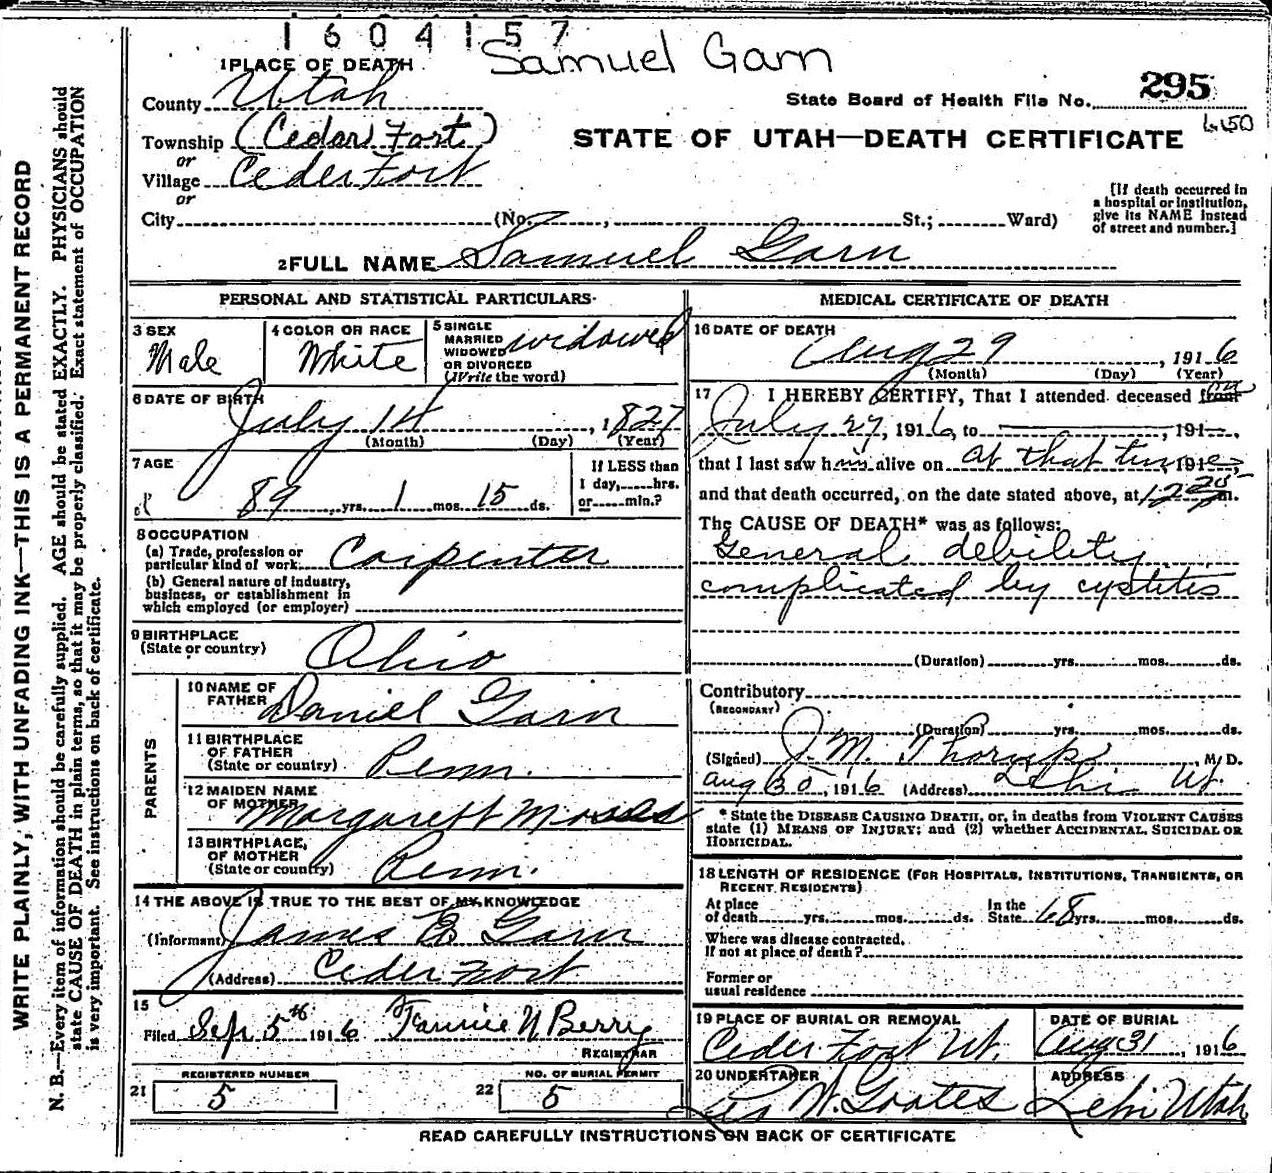 1604157
Samuel Garn
1 PLACE OF DEATH
295
County Utah
State Board of Health File No.
6.50
Township (Cedar Fort)
STATE OF UTAH—DEATH CERTIFICATE
or
Village Ceder Fort
or
City (No. , St.; Ward)
[If death occurred in
a hospital or institution,
give its NAME instead
of street and number.]
2 FULL NAME Samuel Garn
WRITE PLAINLY, WITH UNFADING INK—THIS IS A PERMANENT RECORD
N. B.—Every item of information should be carefully supplied. AGE should be stated EXACTLY. PHYSICIANS should
state CAUSE OF DEATH in plain terms, so that it may be properly classified. Exact statement of OCCUPATION
is very important. See instructions on back of certificate.
PERSONAL AND STATISTICAL PARTICULARS
3 SEX
Male
4 COLOR OR RACE
White
5 SINGLE
MARRIED
WIDOWED
OR DIVORCED
(Write the word)
widowed
6 DATE OF BIRTH
July 14, 1827
(Month) (Day) (Year)
7 AGE
89 yrs. 1 mos. 15 ds.
If LESS than
1 day, hrs.
or min.?
8 OCCUPATION
(a) Trade, profession or
particular kind of work Carpenter
(b) General nature of industry,
business, or establishment in
which employed (or employer)
9 BIRTHPLACE
(State or country) Ohio
PARENTS
10 NAME OF
FATHER Daniel Garn
11 BIRTHPLACE
OF FATHER
(State or country) Penn.
12 MAIDEN NAME
OF MOTHER Margarett Mosses
13 BIRTHPLACE,
OF MOTHER
(State or country) Penn.
14 THE ABOVE IS TRUE TO THE BEST OF MY KNOWLEDGE
(Informant) James E. Garn
(Address) Ceder Fort
15
Filed Sep 5th 1916 Fannie N Berry
REGISTRAR
REGISTERED NUMBER
21 5
NO. OF BURIAL PERMIT
22 5
MEDICAL CERTIFICATE OF DEATH
16 DATE OF DEATH
Aug 29, 1916
(Month) (Day) (Year)
17 I HEREBY CERTIFY, That I attended deceased from on
July 27, 1916, to , 191 ,
that I last saw him alive on at that time, 191 ,
and that death occurred, on the date stated above, at m.
The CAUSE OF DEATH* was as follows:
General debility
complicated by cystitis
(Duration) yrs. mos. ds.
Contributory
(SECONDARY)
(Duration) yrs. mos. ds.
(Signed) J. M. Thorup, M. D.
Aug 30, 1916 (Address) Lehi Ut.
* State the DISEASE CAUSING DEATH, or, in deaths from VIOLENT CAUSES
state (1) MEANS OF INJURY; and (2) whether ACCIDENTAL, SUICIDAL OR
HOMICIDAL.
18 LENGTH OF RESIDENCE (FOR HOSPITALS, INSTITUTIONS, TRANSIENTS, OR
RECENT RESIDENTS)
At place
of death yrs. mos. ds.
In the
State 68 yrs. mos. ds.
Where was disease contracted,
if not at place of death?
Former or
usual residence
19 PLACE OF BURIAL OR REMOVAL
Ceder Fort Ut.
DATE OF BURIAL
Aug 31, 1916
20 UNDERTAKER
W. Goates
ADDRESS
Lehi Utah
READ CAREFULLY INSTRUCTIONS ON BACK OF CERTIFICATE